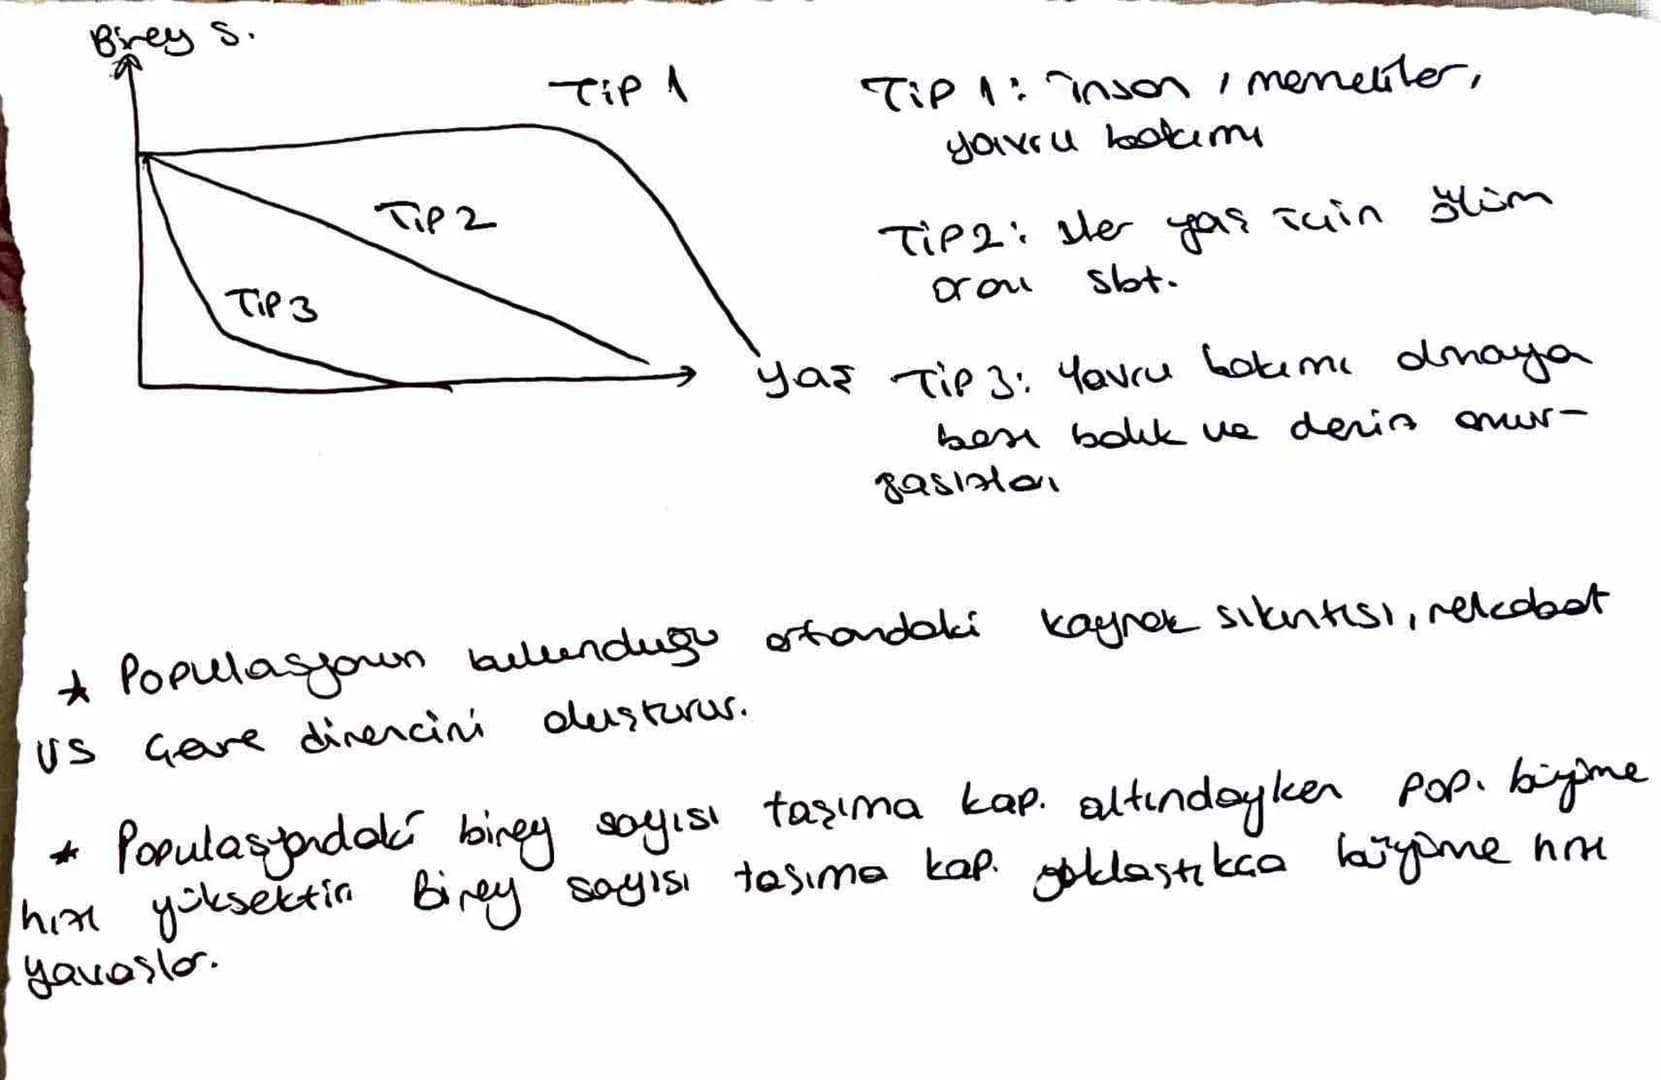 Birey S.
TiP 1
TiP 2
TiP 3
yaş
TiP 1: insan, memeliler,
yavru bakımı
TiP2: Her yaş için ölüm
oranı sbt.
TiP 3: Yavru bakımı olmaya
bazı balık ve deniz omur-
gasızları
* Populasyonun bulunduğu ortandaki kaynak sıkıntısı, rekabet
vs çevre direncini oluşturur.
* Populasyondaki birey sayısı taşıma kap. altındayken pop. büyüme
hızı yüksektir Birey sayısı taşıma kap. yaklaştıkça büyüme hızı
yavaşlar.